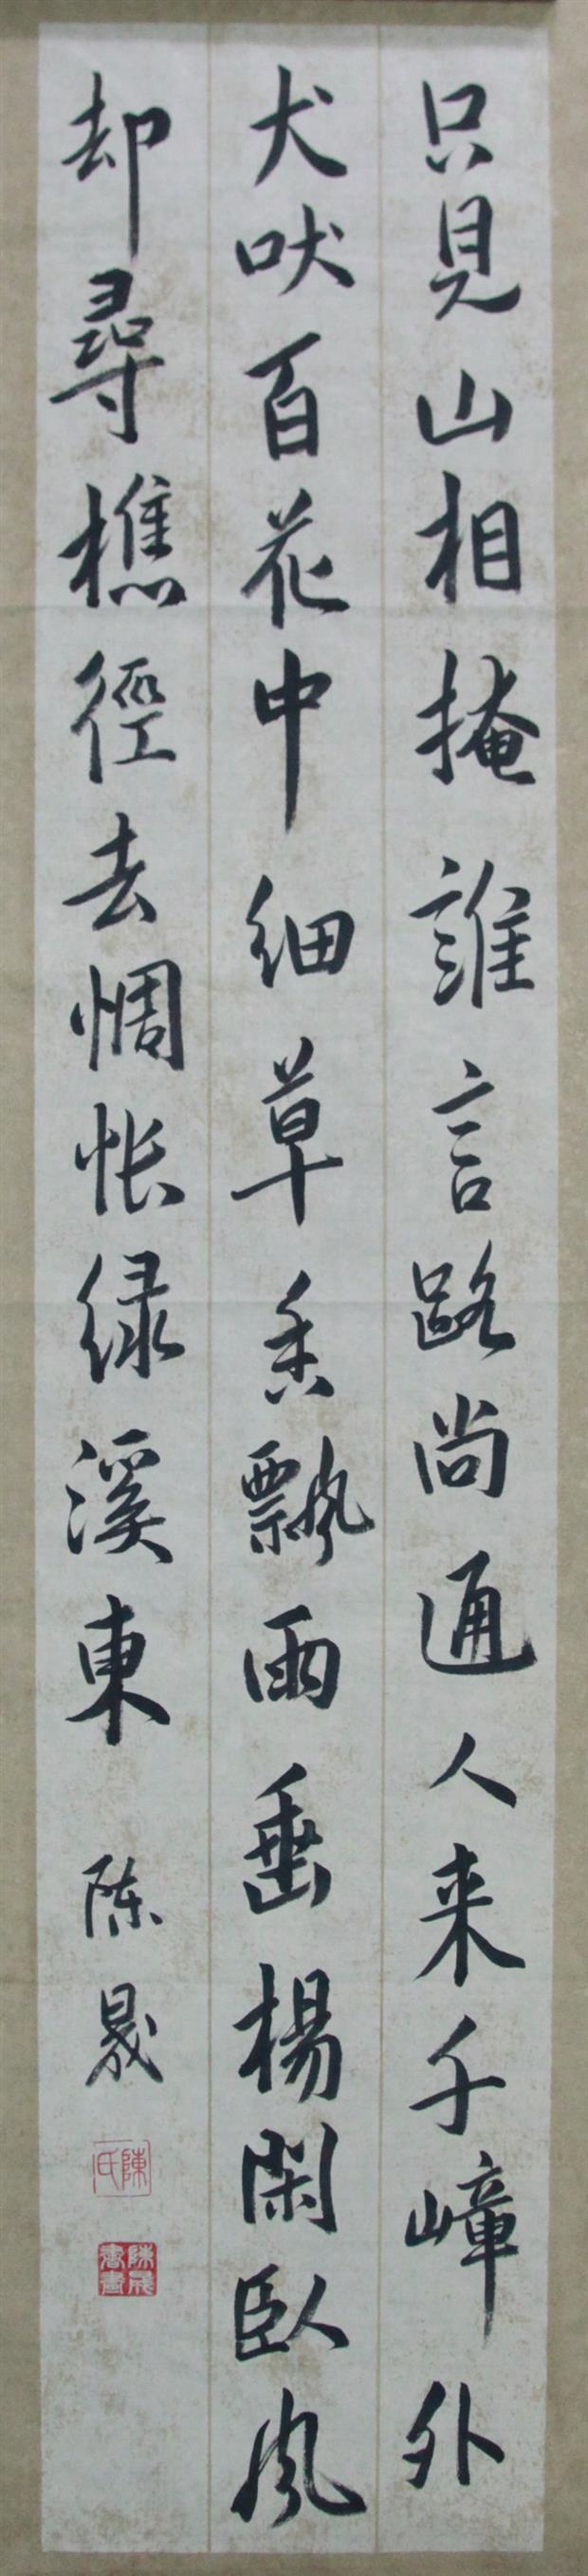 只見山相掩誰言路尚通人来千嶂外
犬吠百花中細草香飄雨垂楊閑臥風
却尋樵徑去惆悵绿溪東
陈晟
陳氏
陳晟書畫